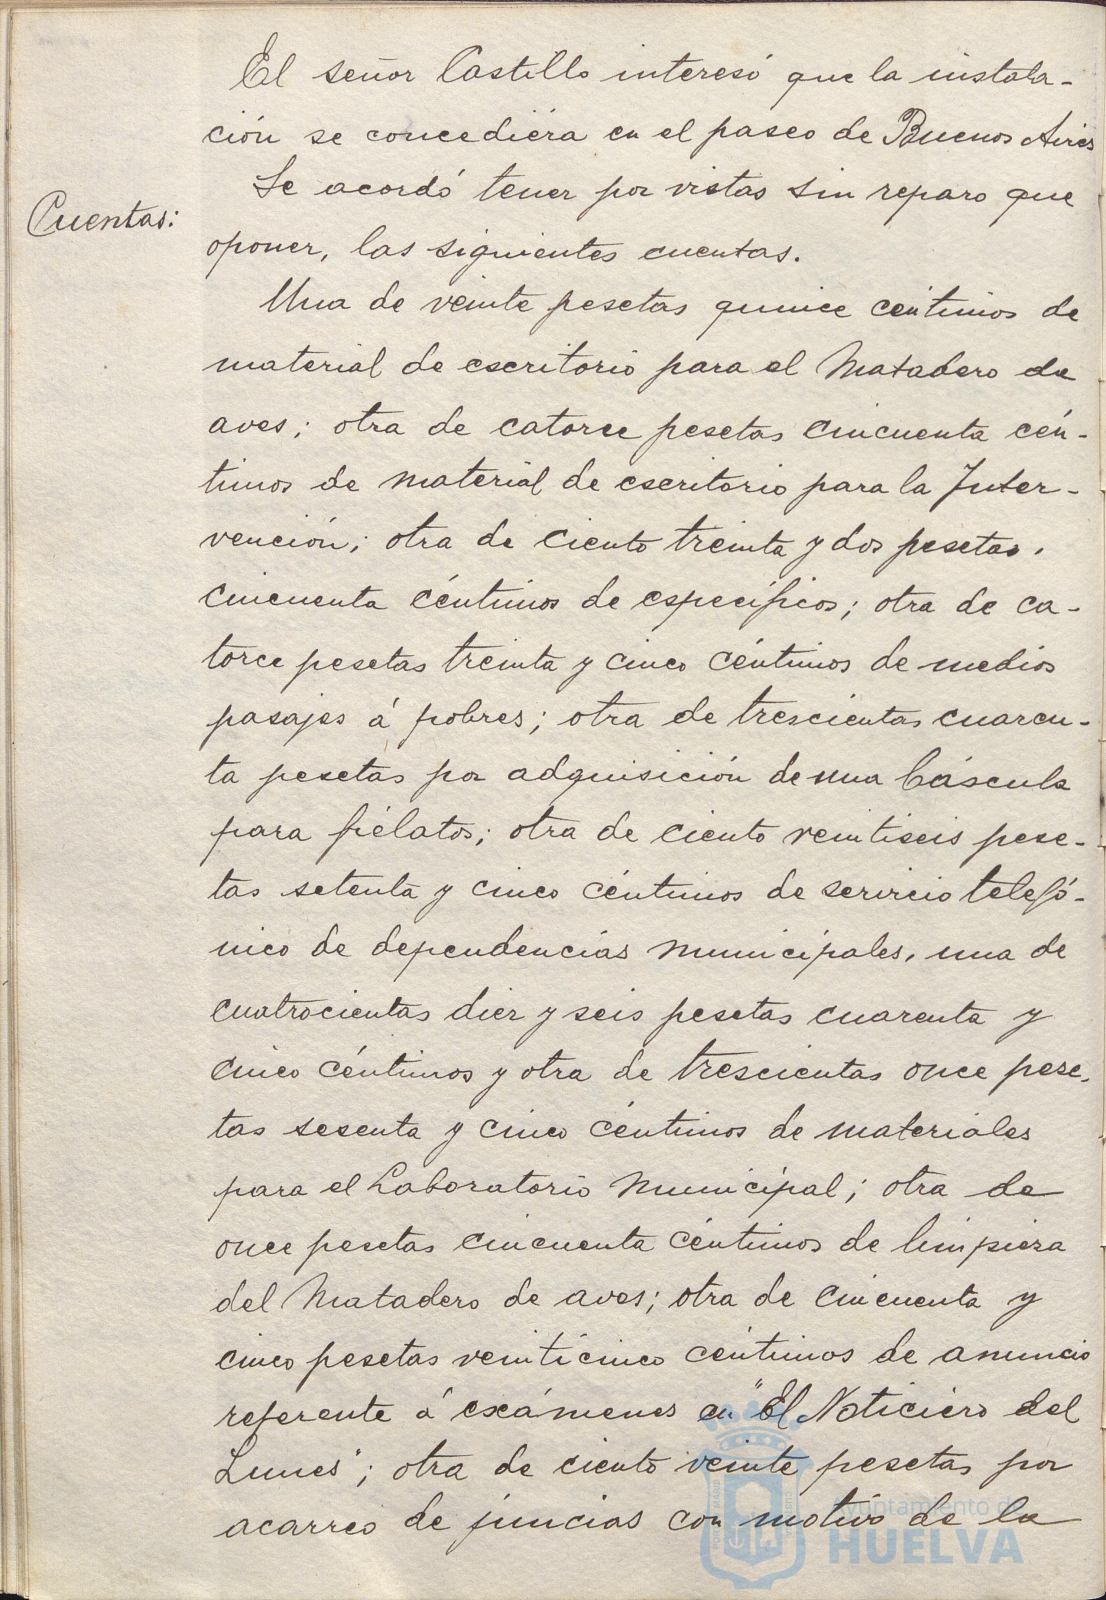 El señor Castillo interesó que la instala-
ción se concediéra en el paseo de Buenos Aires
Cuentas:
Se acordó tener por vistas sin reparo que
oponer, las siguientes cuentas.
Una de veinte pesetas quince céntimos de
material de escritorio para el Matadero de
aves; otra de catorce pesetas cincuenta cén-
timos de material de escritorio para la Inter-
vención; otra de ciento treinta y dos pesetas.
cincuenta céntimos de específicos; otra de ca-
torce pesetas treinta y cinco céntimos de medios
pasajes á pobres; otra de trescientas cuaren-
ta pesetas por adquisición de una báscula
para fiélatos; otra de ciento veintiseis pese-
tas setenta y cinco céntimos de servicio telefó-
nico de dependencias municipales, una de
cuatrocientas diez y seis pesetas cuarenta y
cinco céntimos y otra de trescientas once pese-
tas sesenta y cinco céntimos de materiales
para el Laboratorio Municipal; otra de
once pesetas cincuenta céntimos de limpieza
del Matadero de aves; otra de cincuenta y
cinco pesetas veinticinco céntimos de anuncio
referente á exámenes en "El Noticiero del
Lunes"; otra de ciento veinte pesetas por
acarreo de juncias con motivo de la
Ayuntamiento de
HUELVA